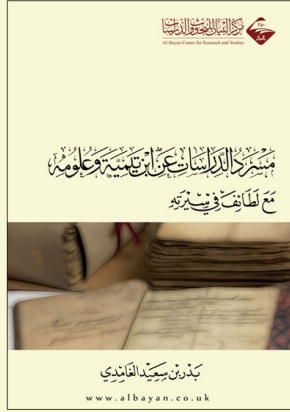 مركز البيان للبحوث والدراسات
Al-Bayan Center for Research and Studies
مَسْرَدُ الدِّرَاسَاتِ عَنِ ابْنِ تَيْمِيَّةَ وَعُلُومِهِ
مَعَ لَطَائِفَ فِي سِيرَتِهِ
بَدْر بْن سَعِيد الغَامِدِي
www.albayan.co.uk